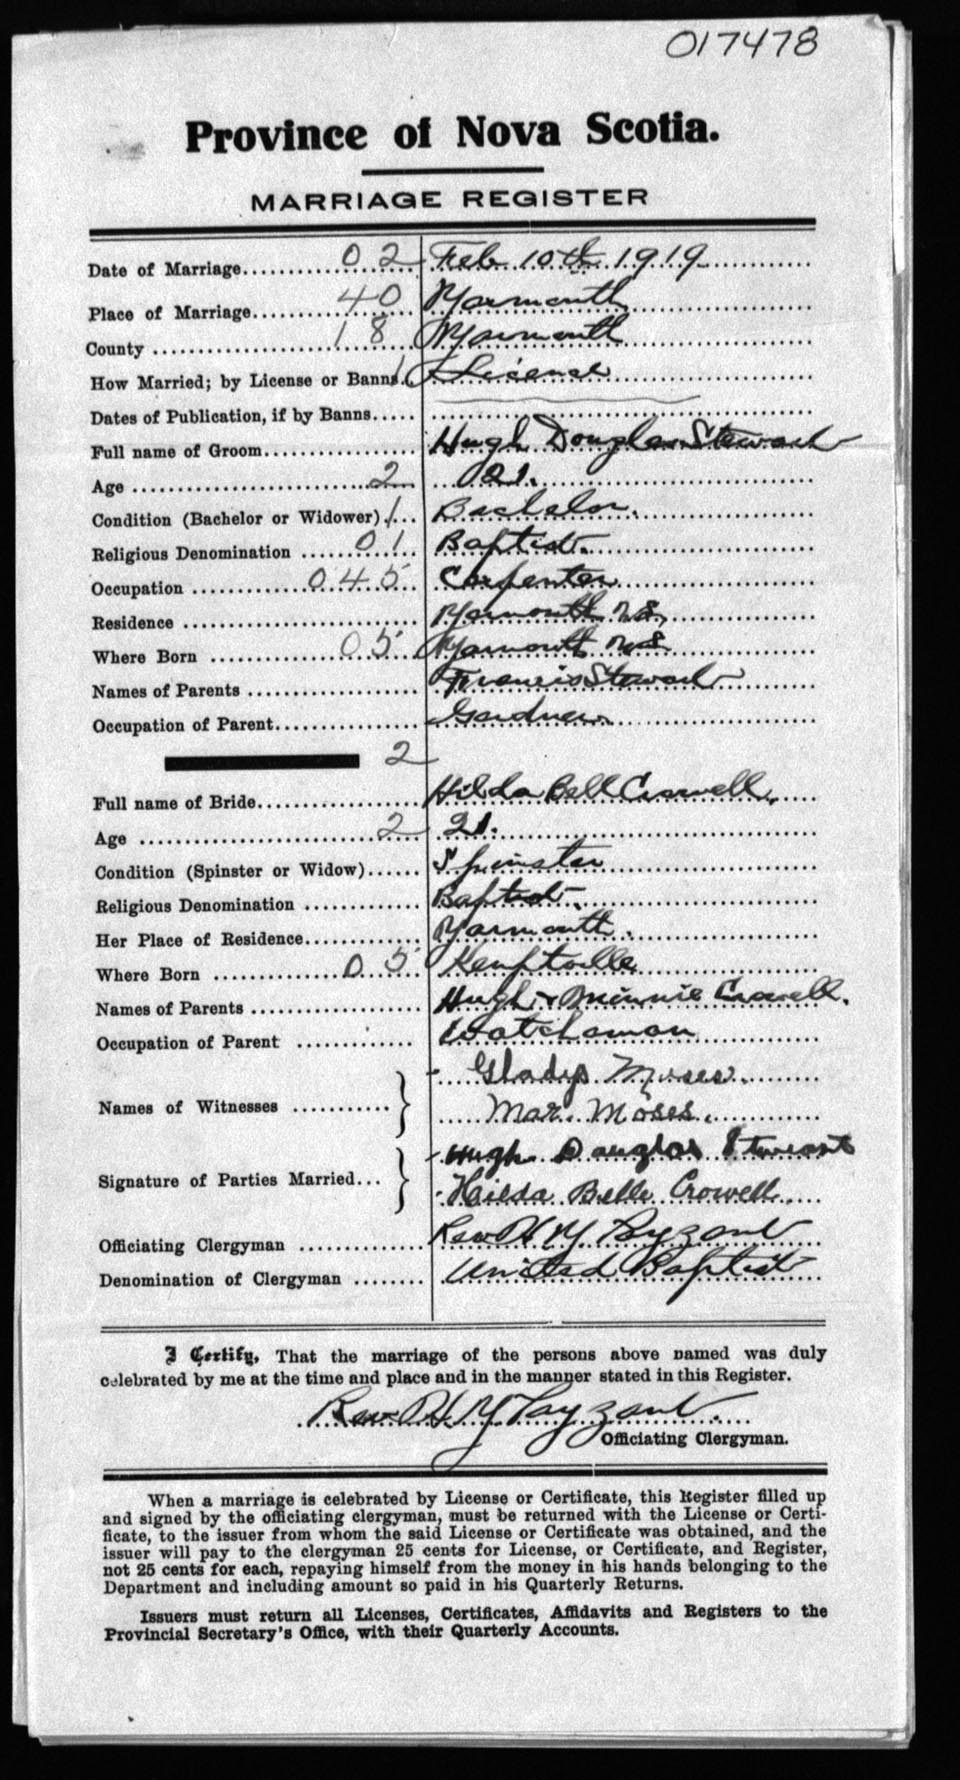 017478
Province of Nova Scotia.
MARRIAGE REGISTER
Date of Marriage 02 Feb 10th 1919
Place of Marriage 40 Yarmouth
County 18 Yarmouth
How Married; by License or Banns 1 License
Dates of Publication, if by Banns
Full name of Groom Hugh Douglas Stewart
Age 2 21.
Condition (Bachelor or Widower) 1 Bachelor.
Religious Denomination 01 Baptist.
Occupation 045 Carpenter
Residence Yarmouth N.S.
Where Born 05 Yarmouth N.S.
Names of Parents Francis Stewart
Occupation of Parent Gardner.
2
Full name of Bride Hilda Bell Crowell.
Age 2 21.
Condition (Spinster or Widow) Spinster
Religious Denomination Baptist.
Her Place of Residence Yarmouth.
Where Born 05 Kemptville
Names of Parents Hugh & Minnie Crowell.
Occupation of Parent Watchman
Names of Witnesses Gladys Moses.
Mar. Moses.
Signature of Parties Married Hugh Douglas Stewart
Hilda Belle Crowell
Officiating Clergyman Rev H Y Payzant
Denomination of Clergyman United Baptist
I Certify, That the marriage of the persons above named was duly
celebrated by me at the time and place and in the manner stated in this Register.
Rev H Y Payzant.
Officiating Clergyman.
When a marriage is celebrated by License or Certificate, this Register filled up
and signed by the officiating clergyman, must be returned with the License or Certi-
ficate, to the issuer from whom the said License or Certificate was obtained, and the
issuer will pay to the clergyman 25 cents for License, or Certificate, and Register,
not 25 cents for each, repaying himself from the money in his hands belonging to the
Department and including amount so paid in his Quarterly Returns.
Issuers must return all Licenses, Certificates, Affidavits and Registers to the
Provincial Secretary's Office, with their Quarterly Accounts.